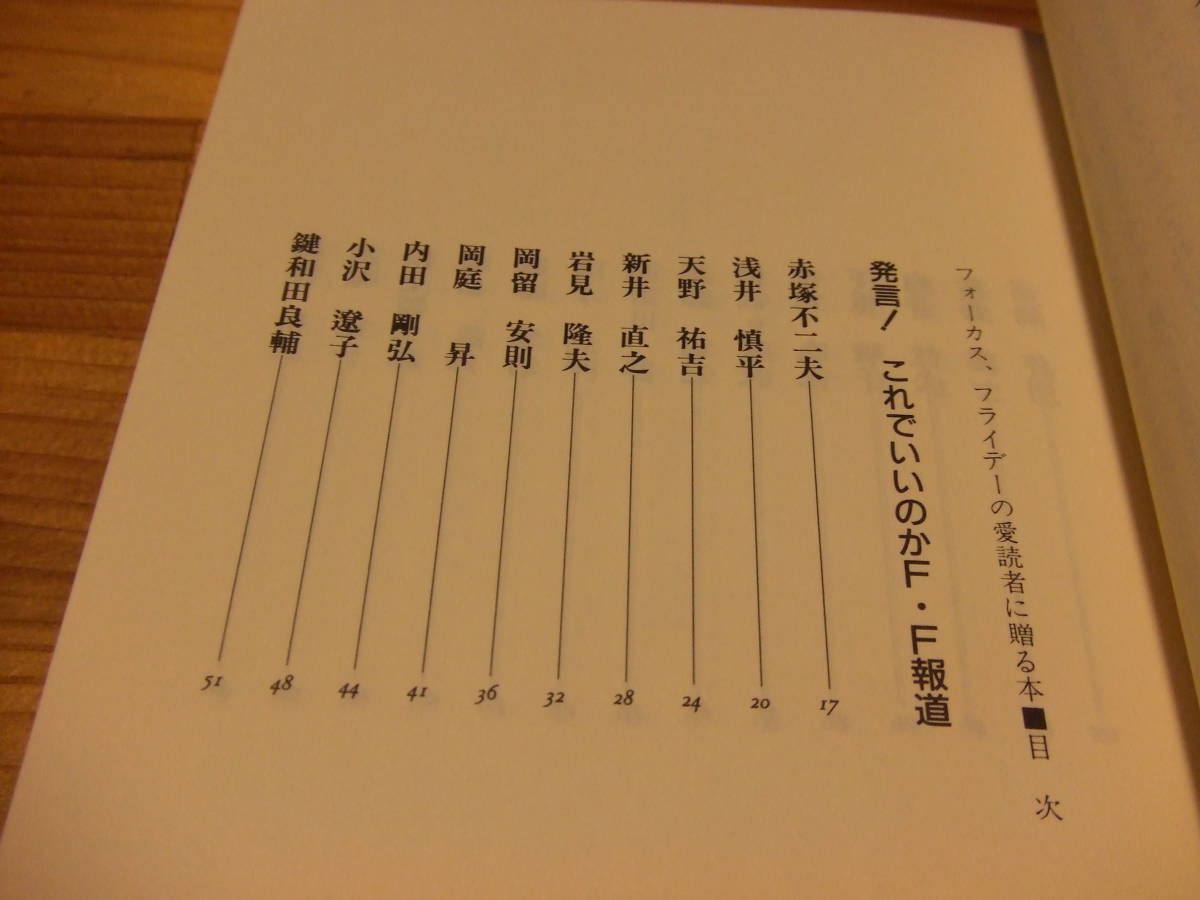 フォーカス、フライデーの愛読者に贈る本■目　次
発言！　これでいいのかF・F報道
赤塚不二夫 17
浅井　慎平 20
天野　祐吉 24
新井　直之 28
岩見　隆夫 32
岡留　安則 36
岡庭　昇 41
内田　剛弘 44
小沢　遼子 48
鍵和田良輔 51